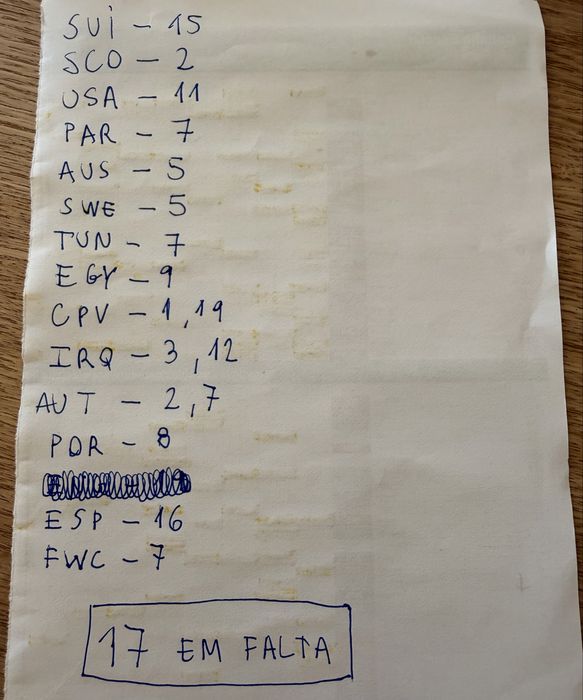 SUI - 15
SCO - 2
USA - 11
PAR - 7
AUS - 5
SWE - 5
TUN - 7
EGY - 9
CPV - 1, 19
IRQ - 3, 12
AUT - 2, 7
POR - 8
ESP - 16
FWC - 7
17 EM FALTA